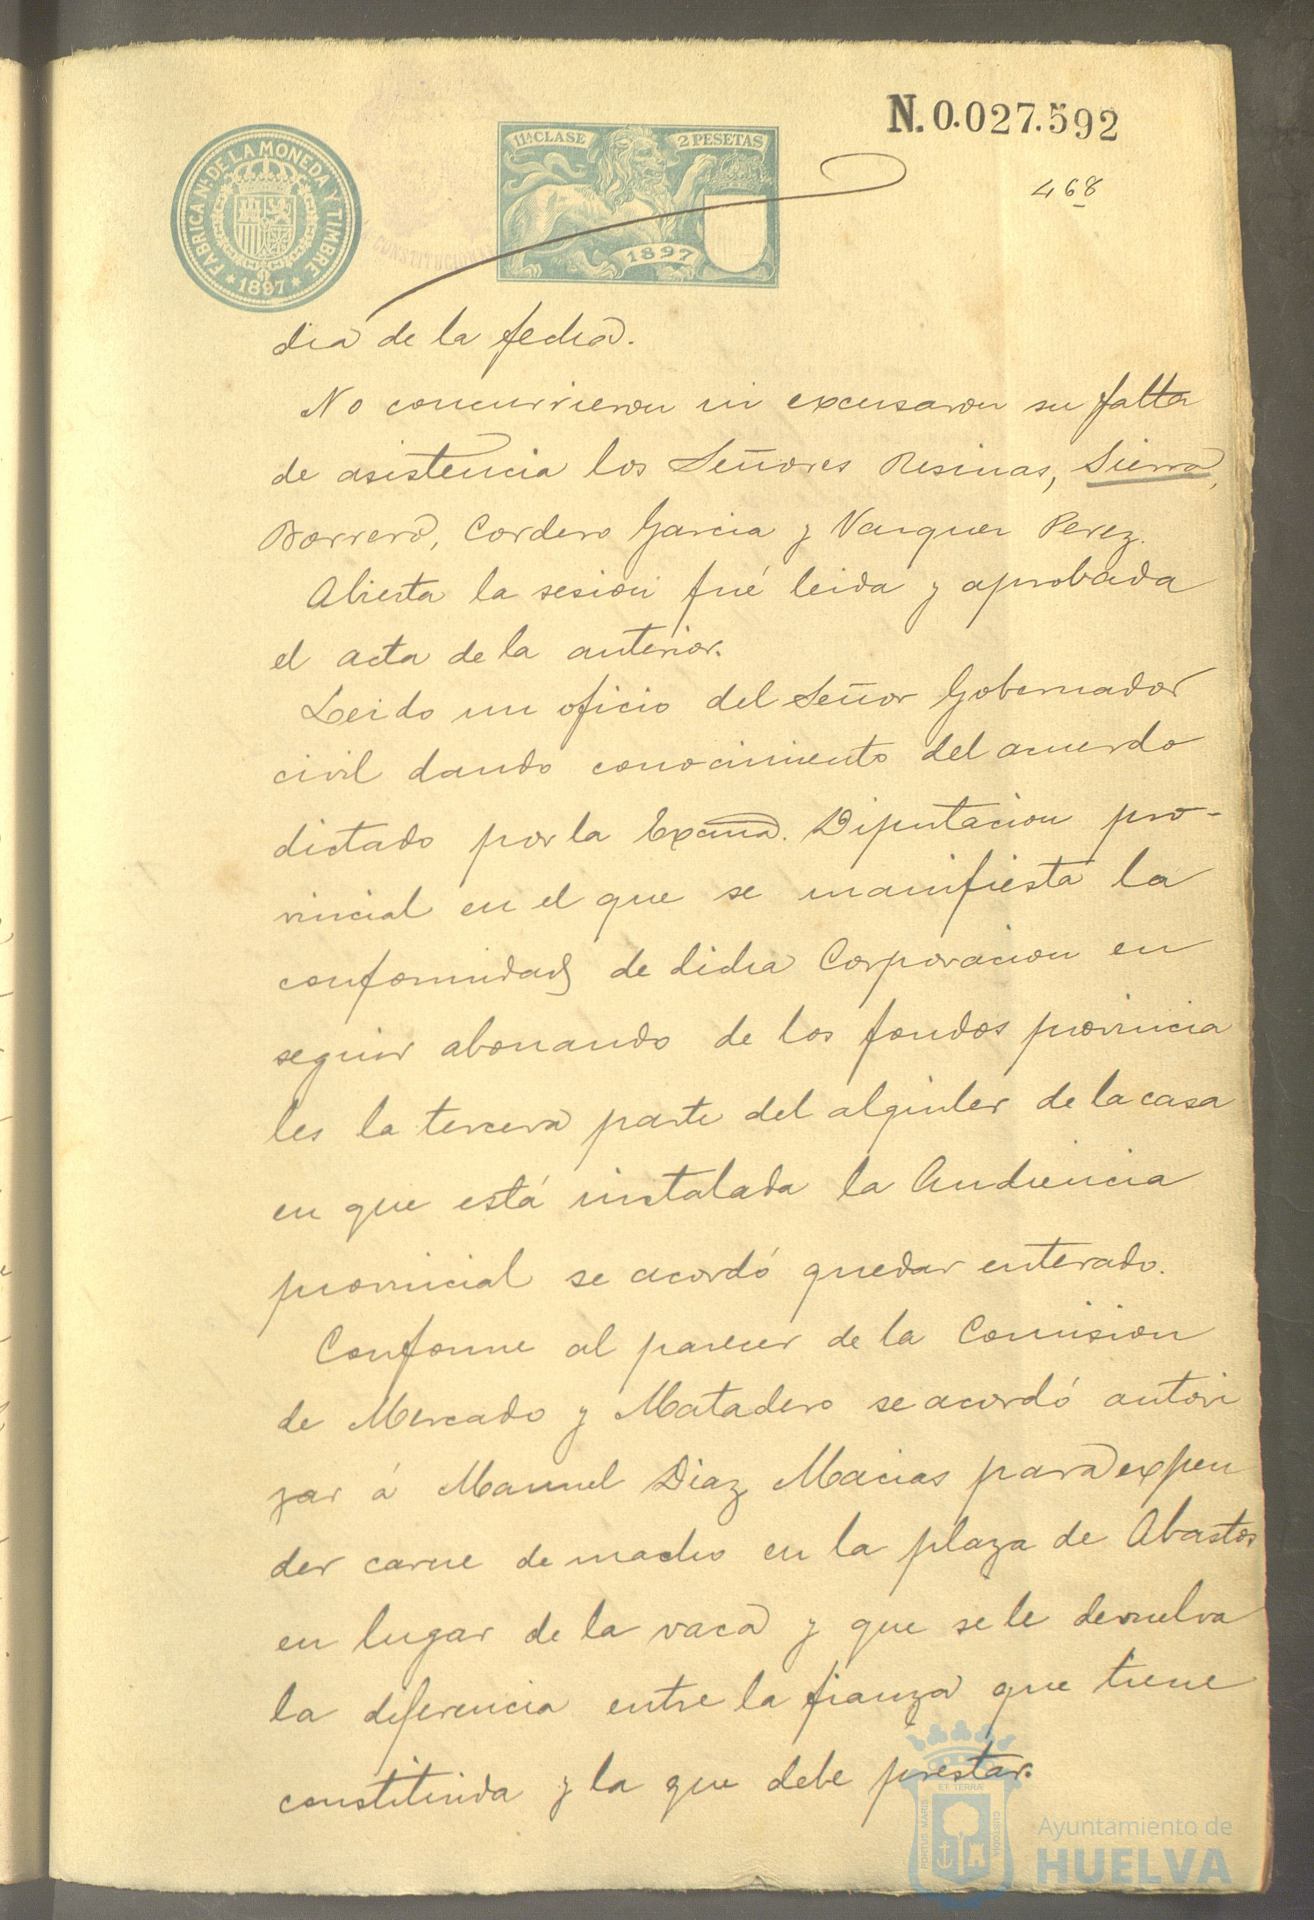 N.0.027.592
468
FABRICA NL. DE LA MONEDA Y TIMBRE
* 1897 *
11ª CLASE
2 PESETAS
1897
CONSTITUCION
dia de la fecha.
No concurrieron ni excusaron su falta
de asistencia los Señores Resinas, Sierra,
Borrero, Cordero Garcia y Vazquez Perez.
Abierta la sesion fué leida y aprobada
el acta de la anterior.
Leido un oficio del Señor Gobernador
civil dando conocimiento del acuerdo
dictado por la Excma. Diputacion pro-
vincial en el que se manifiesta la
conformidad de dicha Corporacion en
seguir abonando de los fondos provincia
les la tercera parte del alquiler de la casa
en que está instalada la Audiencia
provincial se acordó quedar enterado.
Conforme al parecer de la Comision
de Mercado y Matadero se acordó autori
zar á Manuel Diaz Macias para expen
der carne de macho en la plaza de Abastos
en lugar de la vaca y que se le devuelva
la diferencia entre la fianza que tiene
constituida y la que debe prestar.
PORTUS MARIS
ET TERRÆ
CUSTODIA
Ayuntamiento de
HUELVA